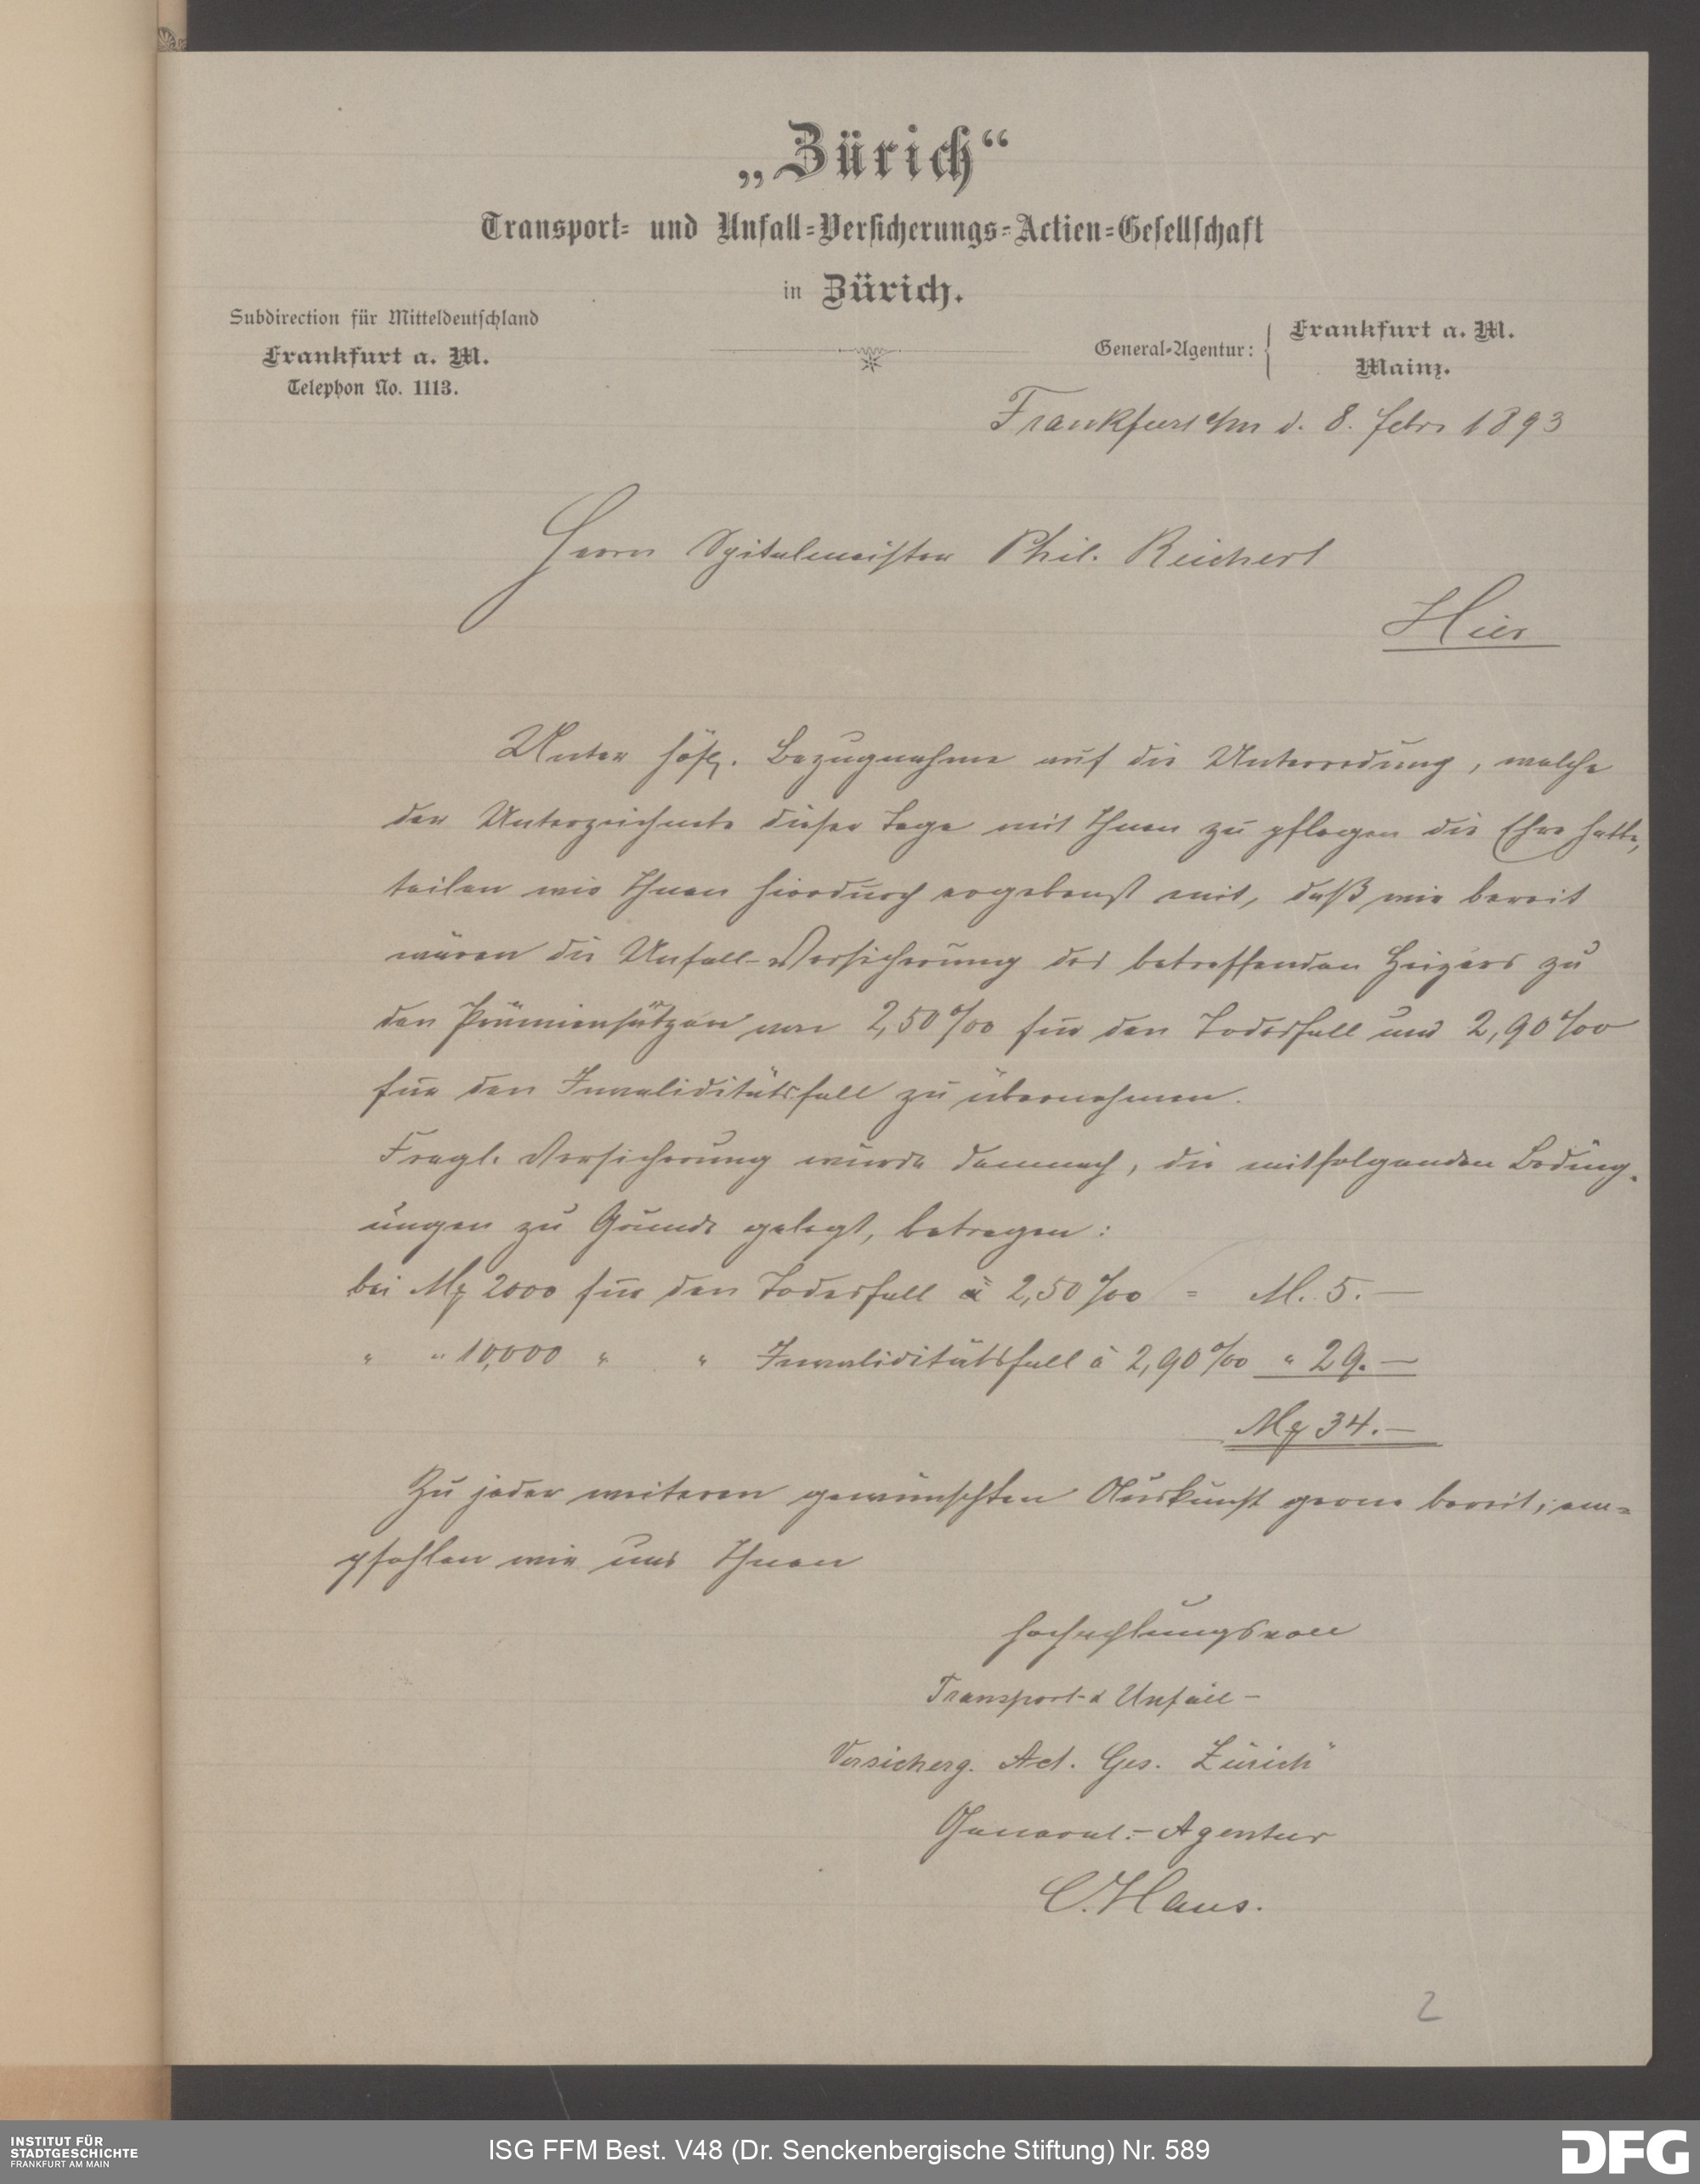 „Zürich“
Transport- und Unfall-Versicherungs-Actien-Gesellschaft
in Zürich.
Subdirection für Mitteldeutschland
Frankfurt a. M.
Telephon No. 1113.
General-Agentur: { Frankfurt a. M.
Mainz.
Frankfurt a/m d. 8. Febr 1893
Herrn Spitalmeister Phil. Reichert
Hier
Unter höfl. Bezugnahme auf die Unterredung, welche
der Unterzeichnete dieser Tage mit Ihnen zu pflegen die Ehre hatte,
teilen wir Ihnen hierdurch ergebenst mit, daß wir bereit
wären die Unfall-Versicherung des betreffenden Heizers zu
den Prämiensätzen von 2,50 ‰ für den Todesfall und 2,90 ‰
für den Invaliditätsfall zu übernehmen.
Fragl. Versicherung würde demnach, die mitfolgenden Beding-
ungen zu Grunde gelegt, betragen:
bei Mk 2000 für den Todesfall à 2,50 ‰ = M. 5.—
" " 10,000 " " Invaliditätsfall à 2,90 ‰ " 29.—
Mk 34.—
Zu jeder weiteren gewünschten Auskunft gerne bereit, em-
pfehlen wir uns Ihnen
hochachtungsvoll
Transport- & Unfall-
Versicherg. Act. Ges. Zürich"
General.- Agentur
C. Haus.
2
INSTITUT FÜR
STADTGESCHICHTE
FRANKFURT AM MAIN
ISG FFM Best. V48 (Dr. Senckenbergische Stiftung) Nr. 589
DFG